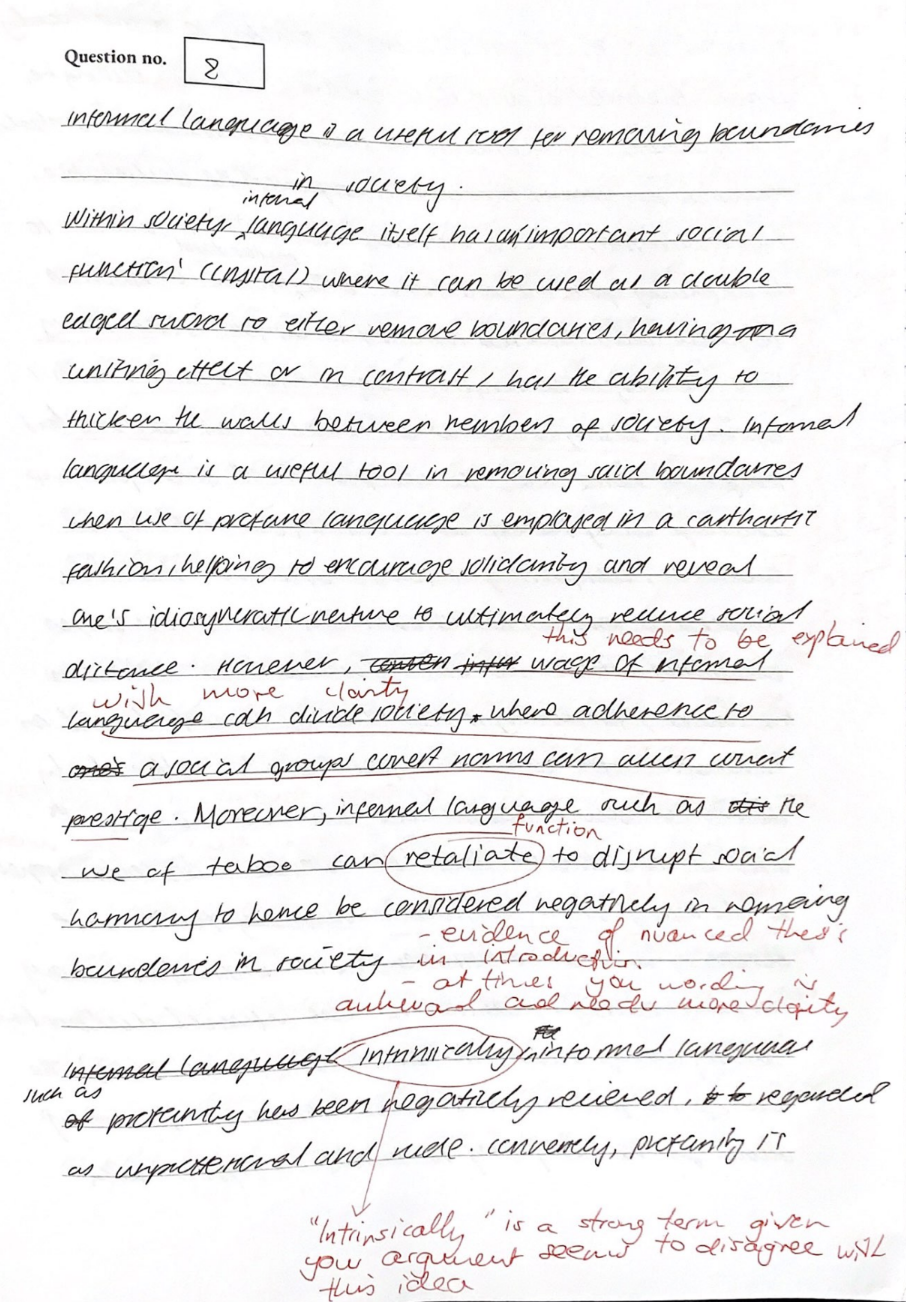 Question no. 8
Informal language is a useful tool for removing boundaries
in society.
informal
Within society, language itself has 'an important social
function' (Crystal) where it can be used as a double
edged sword to either remove boundaries, having a
unifing effect or in contrast, has the ability to
thicken the walls between members of society. Informal
language is a useful tool in removing said boundaries
when use of profane language is employed in a carthartic
fashion, helping to encourage solidarity and reveal
one's idiosyncratic nature to ultimately reduce social
this needs to be explained
distance. However, usage of informal
with more clarity
language can divide society, where adherence to
one's a social groups covert norms can accen covert
prestige. Moreover, informal language such as the
function
use of taboo can retaliate to disrupt social
harmony to hence be considered negatively in removing
- evidence of nuanced thesis
boundaries in society
in introduction
- at times you wording is
awkward and needs more clarity
Informal language Intrinsically, informal language
such as
of profanity has been negatively recieved, regarded
as unprofessional and rude. Conversely, profanity is
"Intrinsically" is a strong term given
you argument seems to disagree with
this idea